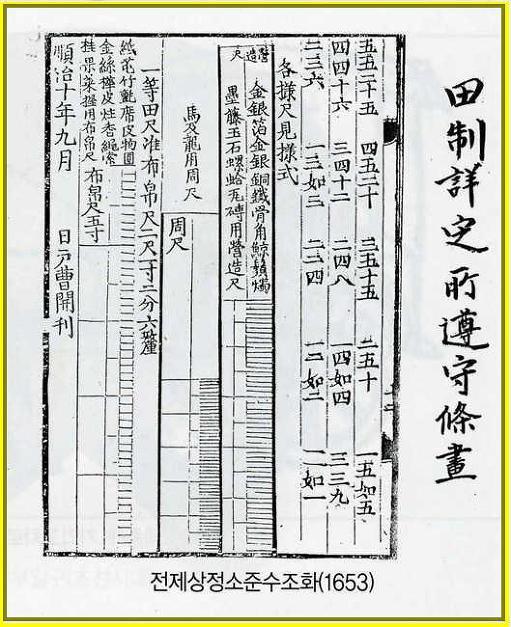 田制詳定所遵守條畫
五五二十五 四五二十 三五十五 二五十 一五如五
四四十六 三四十二 二四八 一四如四 三三九
二三六 一三如三 二二四 一二如二 一一如一
各樣尺見樣式
營造尺
金銀箔金銀銅鐵骨角鯨鬚燭
墨藤玉石螺蛤瓦磚用營造尺
馬及龍用周尺
周尺
一等田尺准布帛尺二尺一寸二分六釐
竹氈席皮物圓
金絲樺皮炷香繩索
用布帛尺
布帛尺五寸
順治十年九月 日戶曹開刊
전제상정소준수조화(1653)